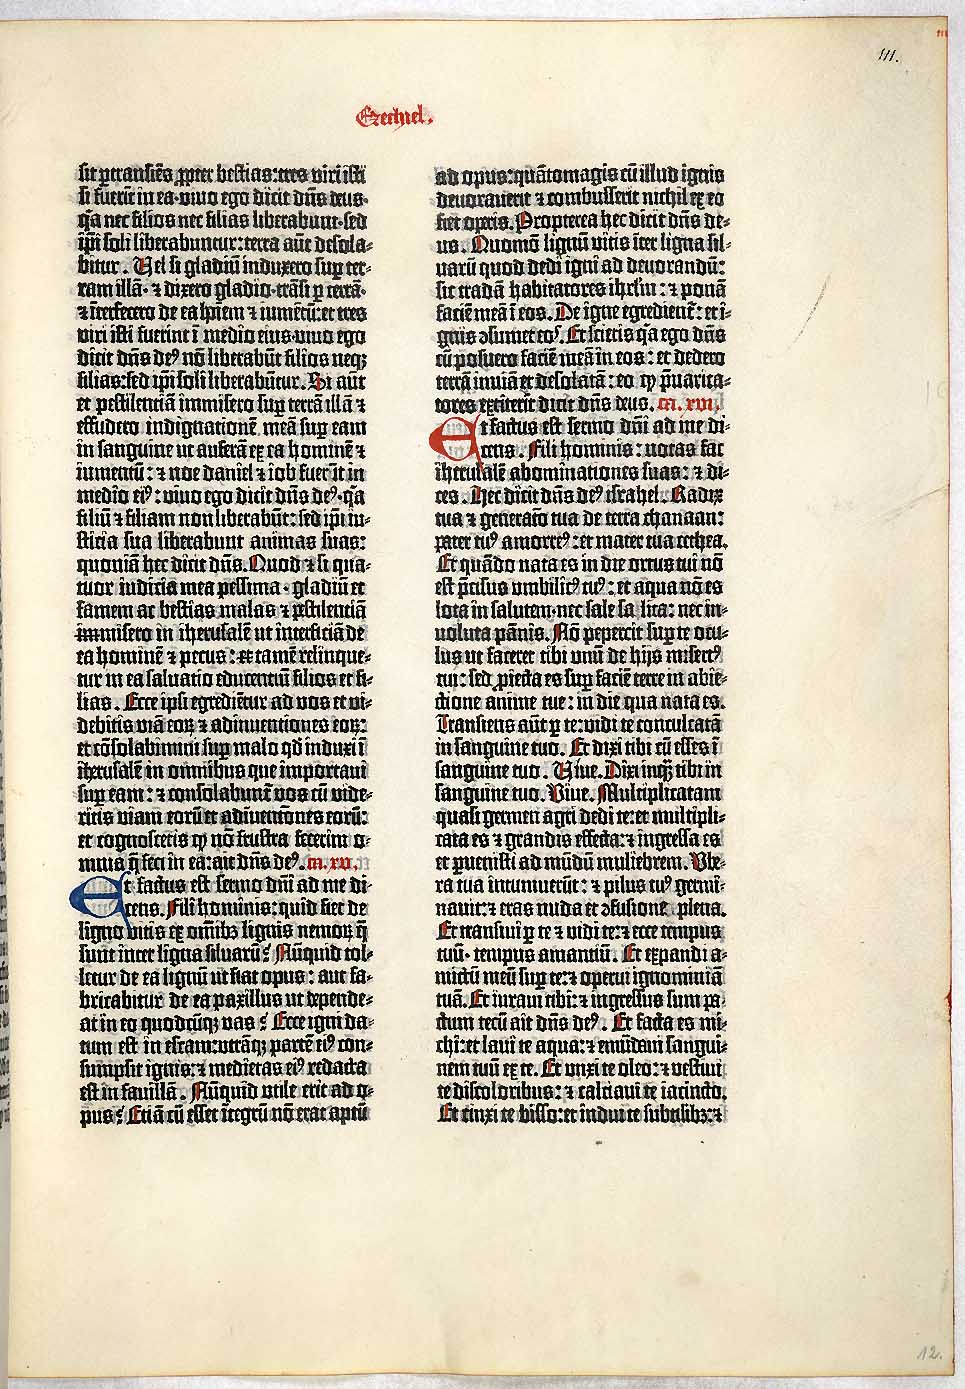 III.
Ezechiel.
sit ꝑtransiēs ꝓpter bestias: tres viri isti
si fuerīt in ea· vivo ego dicit dn̄s deus·
q̄a nec filios nec filias liberabunt· sed
ip̄i soli liberabuntur: terra aūt desola⸗
bitur. Vel si gladiū induxero suꝑ ter⸗
ram illā· ⁊ dixero gladio· trāsi ꝑ terrā·
⁊ īterfecero de ea hoīem ⁊ iumētū: et tres
viri isti fuerint ī medio eius· vivo ego
dicit dn̄s deꝰ nō liberabūt filios neqꝫ
filias: sed ip̄i soli liberabūtur. Si aūt
et pestilentiā immisero suꝑ terrā illā ⁊
effudero indignationē meā suꝑ eam
in sanguine ut auferā ex ea hominē ⁊
iumentū: ⁊ noe daniel ⁊ iob fuerīt in
medio eiꝰ: vivo ego dicit dn̄s deꝰ· q̄a
filiū ⁊ filiam non liberabūt: sed ip̄i iu⸗
sticia sua liberabunt animas suas:
quoniā hec dicit dn̄s. Quod ⁊ si qua⸗
tuor iudicia mea pessima· gladiū et
famem ac bestias malas ⁊ pestilentiā
immisero in iherusalē ut interficiā de
ea hominē ⁊ pecus: ⁊ tamē relinque⸗
tur in ea saluatio educentiū filios et fi⸗
lias. Ecce ipsi egredientur ad vos et vi⸗
debitis viā eoꝝ ⁊ adinuentiones eoꝝ:
et cōsolabimini suꝑ malo qd̄ induxi ī
iherusalē in omnibus que importaui
suꝑ eam: ⁊ consolabunt̄ vos cū vide⸗
ritis viam eorū et adinuentiones eorū:
et cognoscetis ꝙ nō frustra fecerim o⸗
mnia q̄ feci in ea: ait dn̄s deꝰ. ca. xv.
Et factus est sermo dn̄i ad me di⸗
cens. Fili hominis: quid fiet de
ligno vitis ex omībꝫ lignis nemoꝝ q̄
sunt inter ligna siluarū? Nūquid tol⸗
letur de ea lignū ut fiat opus: aut fa⸗
bricabitur de ea paxillus ut depende⸗
at in eo quodcūqꝫ vas? Ecce igni da⸗
tum est in escam: utrāqꝫ partē eiꝰ con⸗
sumpsit ignis: ⁊ medietas eiꝰ redacta
est in fauillā. Nūquid vtile erit ad o⸗
pus? Etiā cū esset ītegrū nō erat aptū
ad opus: quātomagis cū illud ignis
deuorauerit ⁊ combusserit nichil ex eo
fiet operis. Propterea hec dicit dn̄s de⸗
us. Quomō lignū vitis iter ligna sil⸗
uarū quod dedi igni ad deuorandū:
sic tradā habitatores ihrl̄m: ⁊ ponā
faciē meā ī eos. De igne egredient̄: et i⸗
gnis ↄsumet eoꝰ. Et scietis q̄a ego dn̄s
cū posuero faciē meā in eos: et dedero
terrā inuiā et desolatā: eo ꝙ p̄uarica⸗
tores extiterīt dicit dn̄s deus. ca. xvi.
Et factus est sermo dn̄i ad me di⸗
cens. Fili hominis: notas fac
iherusalē abominationes suas: ⁊ di⸗
ces. Hec dicit dn̄s deꝰ israhel. Radix
tua ⁊ generat̄o tua de terra chanaan:
pater tuꝰ amorreꝰ: et mater tua cethea.
Et quādo nata es in die ortus tui nō
est p̄cisus vmbilicꝰ tuꝰ: et aqua nō es
lota in salutem· nec sale salita: nec in⸗
uoluta pānis. Nō pepercit suꝑ te ocu⸗
lus ut faceret tibi unū de hijs misertꝰ
tui: sed ꝓiecta es suꝑ faciē terre in abie⸗
ctione anime tue: in die qua nata es.
Transiens aūt ꝑ te: vidi te conculcatā
in sanguine tuo. Et dixi tibi cū esses ī
sanguine tuo. Viue. Dixi inqꝫ tibi in
sanguine tuo. Viue. Multiplicatam
quasi germen agri dedi te: et multipli⸗
cata es ⁊ grandis effecta: ⁊ ingressa es
et ꝑuenisti ad mūdū muliebrem. Vbe⸗
ra tua intumuerūt: ⁊ pilus tuꝰ germi⸗
nauit: ⁊ eras nuda et ↄfusione plena.
Et transiui ꝑ te ⁊ vidi te: ⁊ ecce tempus
tuū· tempus amantiū. Et expandi a⸗
mictū meū suꝑ te: ⁊ operui ignominiā
tuā. Et iuraui tibi: ⁊ ingressus sum pa⸗
ctum tecū ait dn̄s deꝰ. Et facta es mi⸗
chi: et laui te aqua: ⁊ emūdaui sangui⸗
nem tuū ex te. Et vnxi te oleo: ⁊ vestiui
te discoloribus: ⁊ calciaui te iacincto.
Et cinxi te bisso: et indui te subtilibꝫ: ⁊
12.